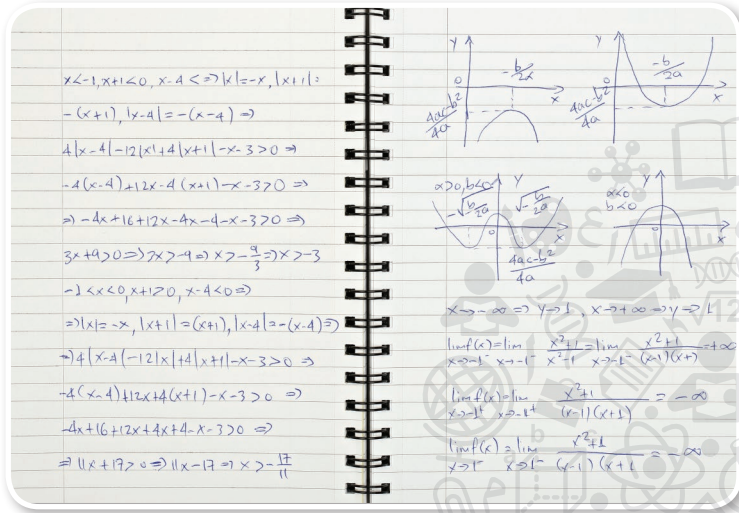 x<-1, x+1<0, x-4<=>|x|=-x, |x+1|=
-(x+1), |x-4|=-(x-4) =>
4|x-4|-12|x|+4|x+1|-x-3>0 =>
-4(x-4)+12x-4(x+1)-x-3>0 =>
=> -4x+16+12x-4x-4-x-3>0 =>
3x+9>0=>3x>-9=>x>-9/3=>x>-3
-1<x<0, x+1>0, x-4<0=>
=>|x|=-x, |x+1|=(x+1), |x-4|=-(x-4)=>
=>4|x-4(-12|x|+4|x+1|-x-3>0 =>
-4(x-4)+12x+4(x+1)-x-3>0 =>
-4x+16+12x+4x+4-x-3>0 =>
=> 11x+17>0=>11x-17=>x>-17/11
y
0
-b/2a
x
4ac-b²/4a
y
0
-b/2a
x
4ac-b²/4a
a>0, b<0
y
-√b/2a
√-b/2a
0
x
4ac-b²/4a
a<0
b<0
y
0
x
x->-∞=>y->1, x->+∞=>y->1
lim f(x)=lim x²+1/x²-1=lim x²+1/(x-1)(x+)=+∞
x->-1⁻ x->-1⁻ x->-1⁻
lim f(x)=lim x²+1/(x-1)(x+1)=-∞
x->-1⁺ x->-1⁺
lim f(x)=lim x²+1/(x-1)(x+1=-∞
x->1⁻ x->1⁻